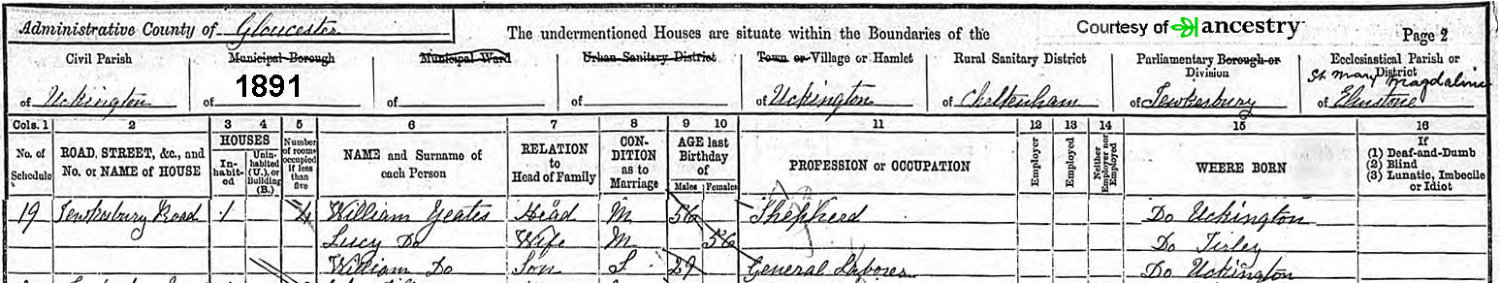 Administrative County of Gloucester The undermentioned Houses are situate within the Boundaries of the Courtesy of ancestry Page 2
Civil Parish Municipal Borough Municipal Ward Urban Sanitary District Town or Village or Hamlet Rural Sanitary District Parliamentary Borough or Division Ecclesiastical Parish or District
of Uckington of 1891 of of of Uckington of Cheltenham of Tewkesbury of St Mary Magdaline Elmstone
Cols. 1 2 3 4 5 6 7 8 9 10 11 12 13 14 15 16
No. of Schedule ROAD, STREET, &c., and No. or NAME of HOUSE HOUSES Inhabited Uninhabited (U.), or Building (B.) Number of rooms occupied if less than five NAME and Surname of each Person RELATION to Head of Family CONDITION as to Marriage AGE last Birthday of Males Females PROFESSION or OCCUPATION Employer Employed Neither Employer nor Employed WHERE BORN If (1) Deaf-and-Dumb (2) Blind (3) Lunatic, Imbecile or Idiot
19 Tewkesbury Road 1 4 William Yeates Head M 56 Shepherd Do Uckington
Lucy Do Wife M 56 Do Tirley
William Do Son S 29 General Laborer Do Uckington